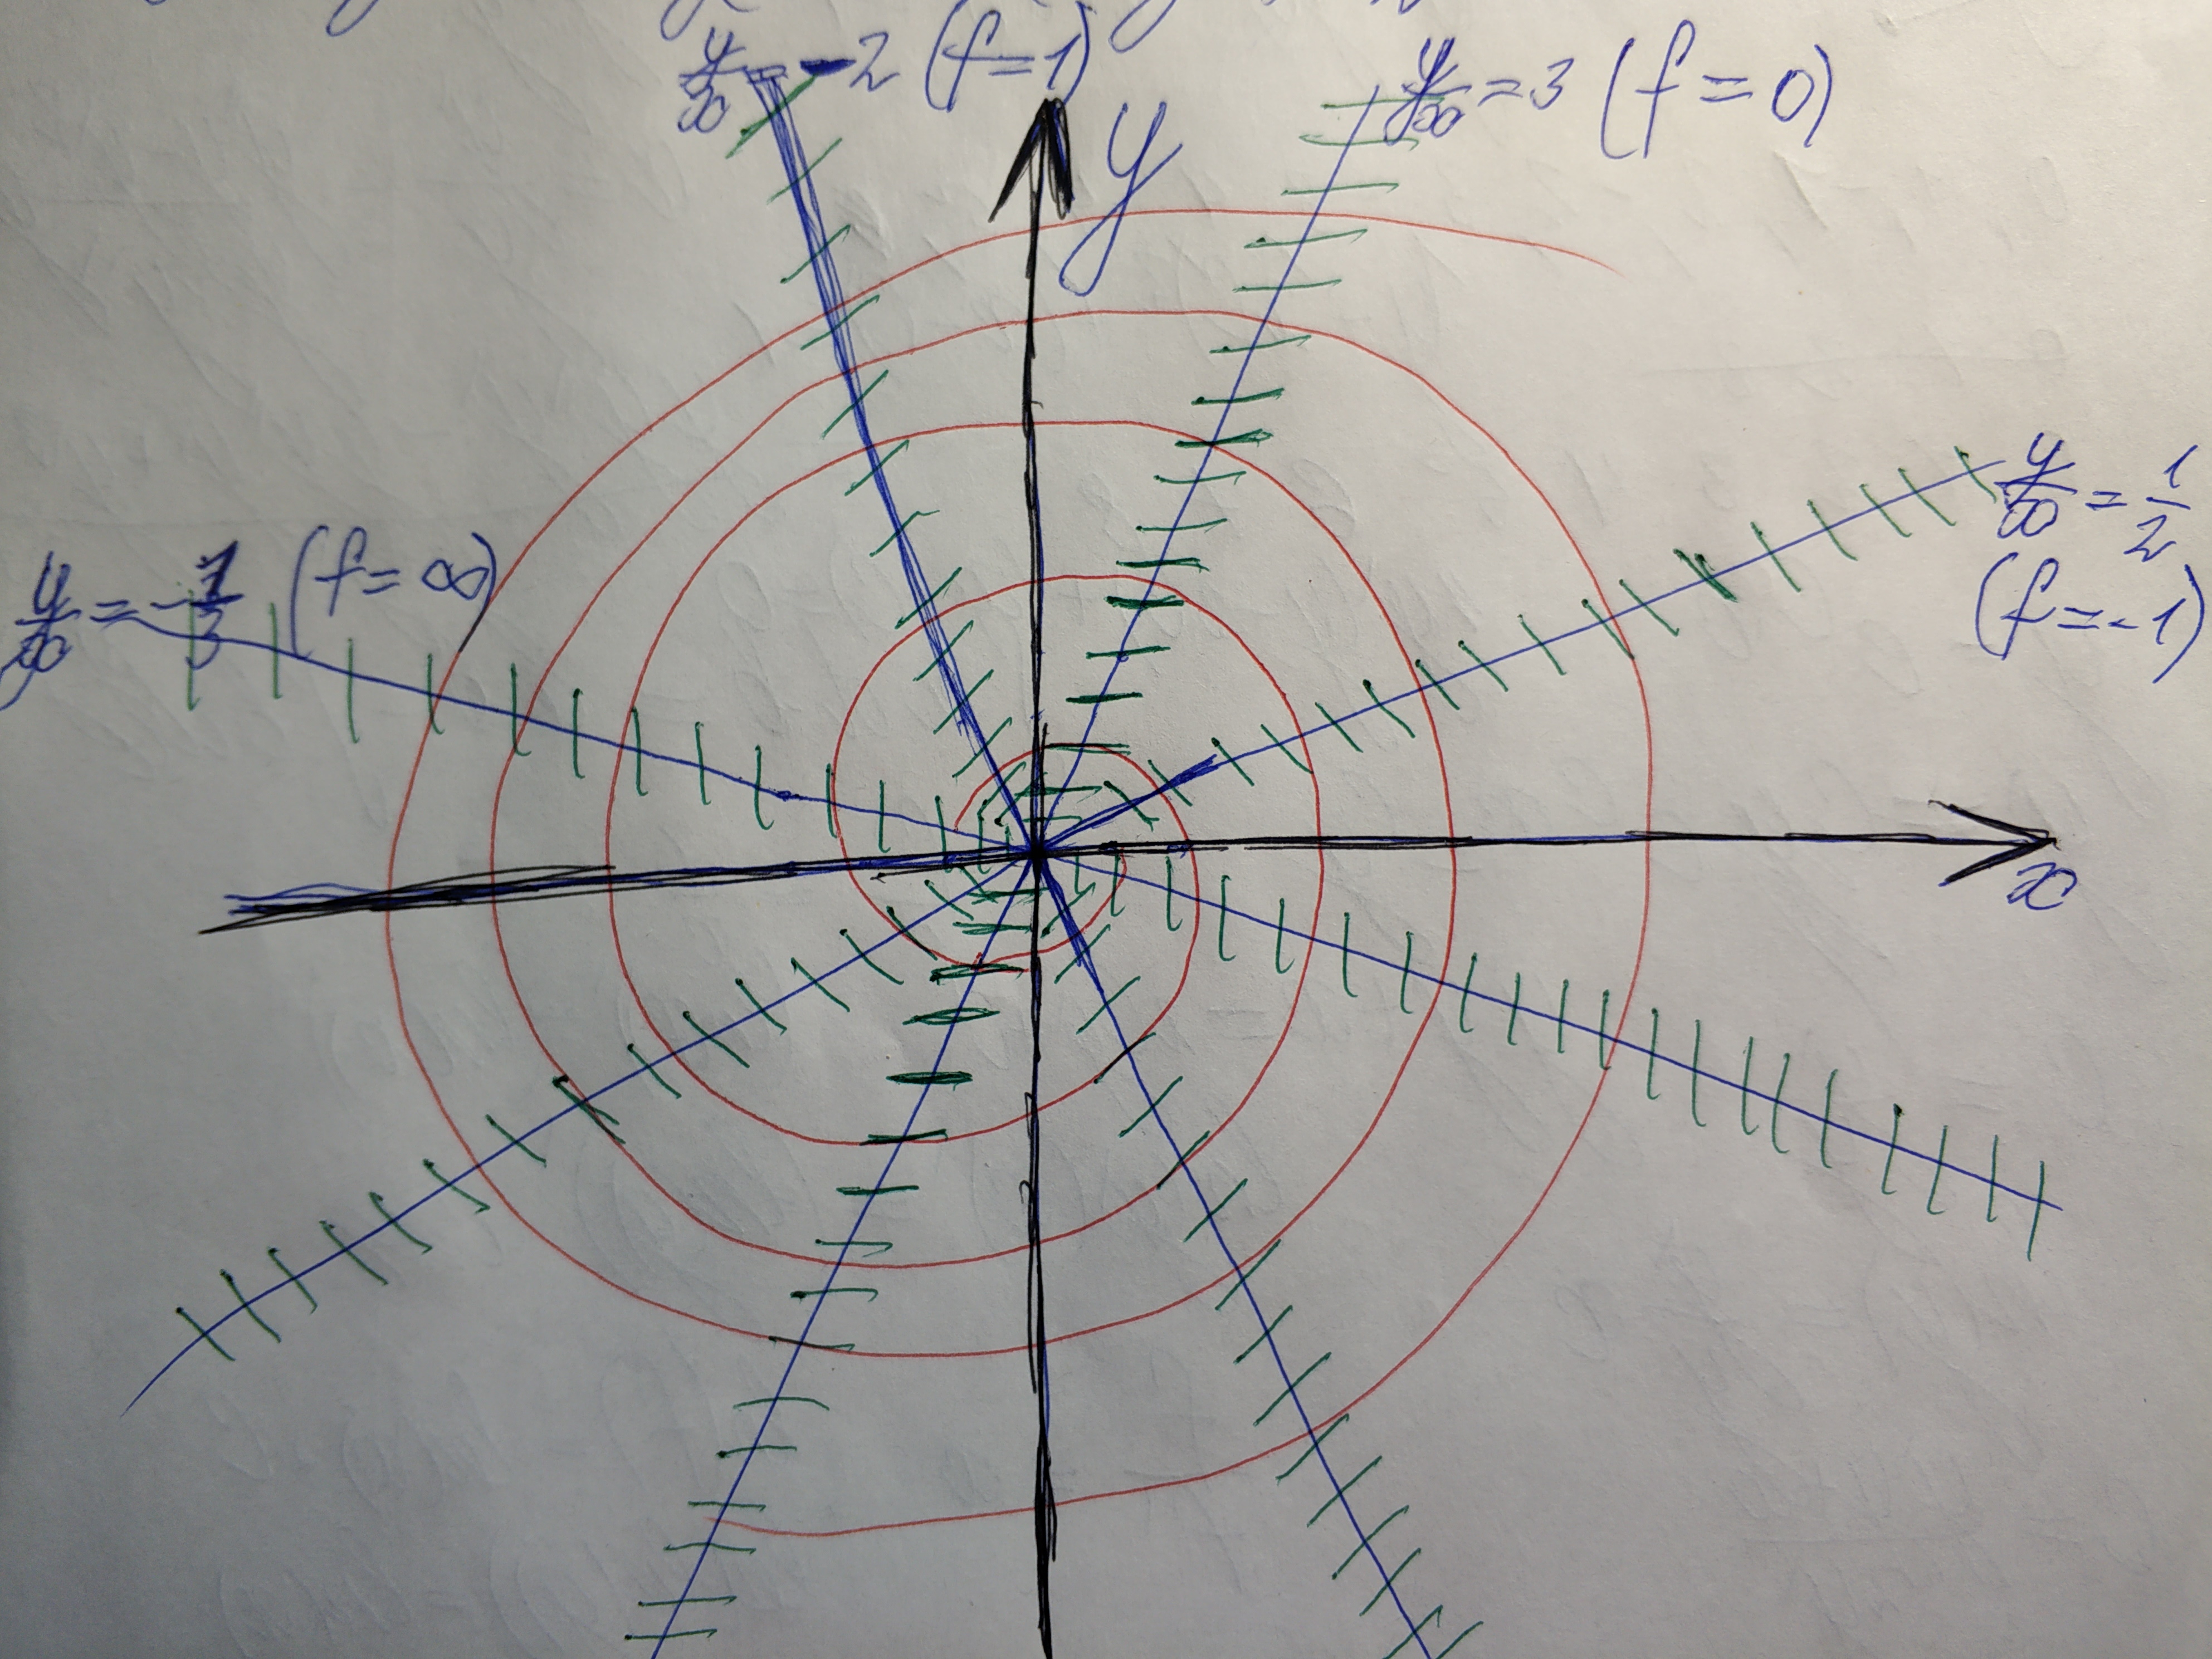 y/x = -2 (f=1)
y/x = 3 (f=0)
y
y/x = 1/2
(f=-1)
y/x = -1/3 (f=∞)
x